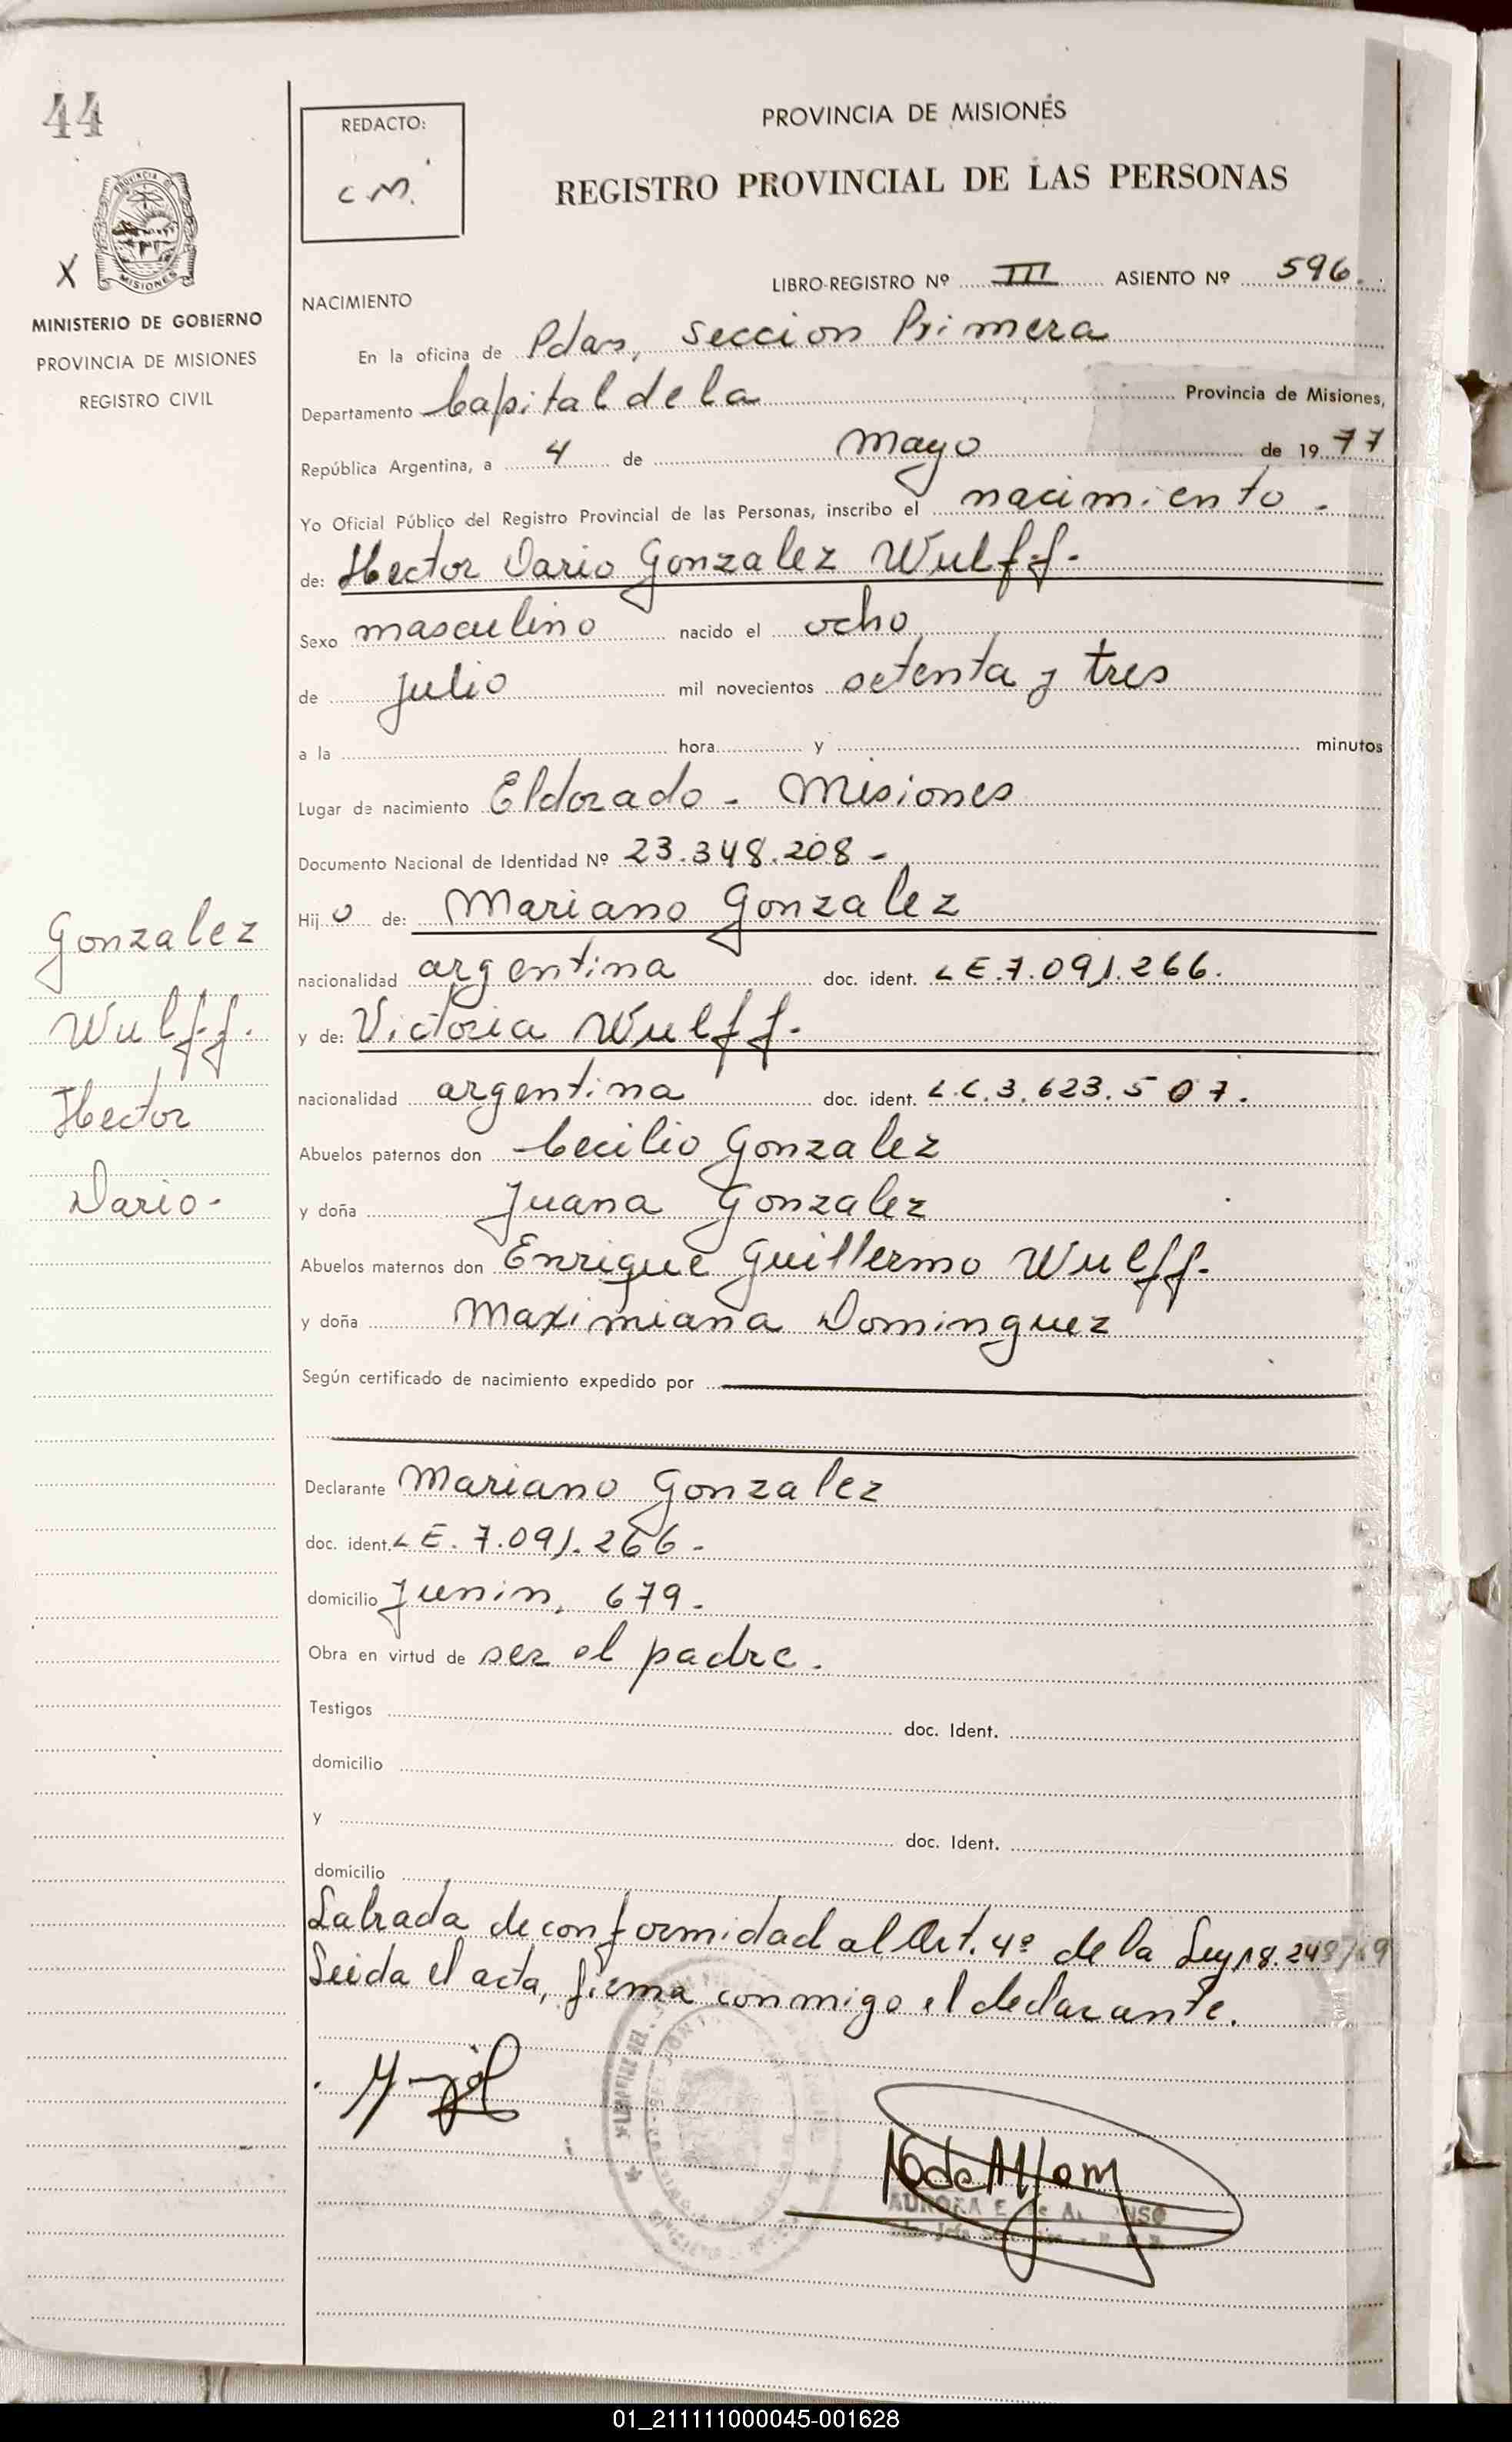 44
REDACTO:
C M.
PROVINCIA DE MISIONES
REGISTRO PROVINCIAL DE LAS PERSONAS
X
MISIONES
MINISTERIO DE GOBIERNO
PROVINCIA DE MISIONES
REGISTRO CIVIL
LIBRO-REGISTRO Nº III ASIENTO Nº 596.
NACIMIENTO
En la oficina de Pdas, Seccion Primera
Departamento Capital de la Provincia de Misiones,
República Argentina, a 4 de Mayo de 1977
Yo Oficial Público del Registro Provincial de las Personas, inscribo el nacimiento.
de: Hector Dario Gonzalez Wulff.
Sexo masculino nacido el ocho
de julio mil novecientos setenta y tres
a la hora y minutos
Lugar de nacimiento Eldorado - Misiones
Documento Nacional de Identidad Nº 23.348.208-
Hijo de: Mariano Gonzalez
nacionalidad argentina doc. ident. LE.7.091.266.
y de: Victoria Wulff.
nacionalidad argentina doc. ident. L.C.3.623.507.
Abuelos paternos don Cecilio Gonzalez
y doña Juana Gonzalez
Abuelos maternos don Enrique Guillermo Wulff.
y doña Maximiana Dominguez
Gonzalez
Wulff.
Hector
Dario-
Según certificado de nacimiento expedido por
Declarante Mariano Gonzalez
doc. ident. LE. 7.091.266-
domicilio Junin, 679-
Obra en virtud de ser el padre.
Testigos doc. Ident.
domicilio
y doc. Ident.
domicilio
Labrada de conformidad al Art. 4º de la Ley 18.248/69
Leida el acta, firma conmigo el declarante.
AURORA E.
01_211111000045-001628